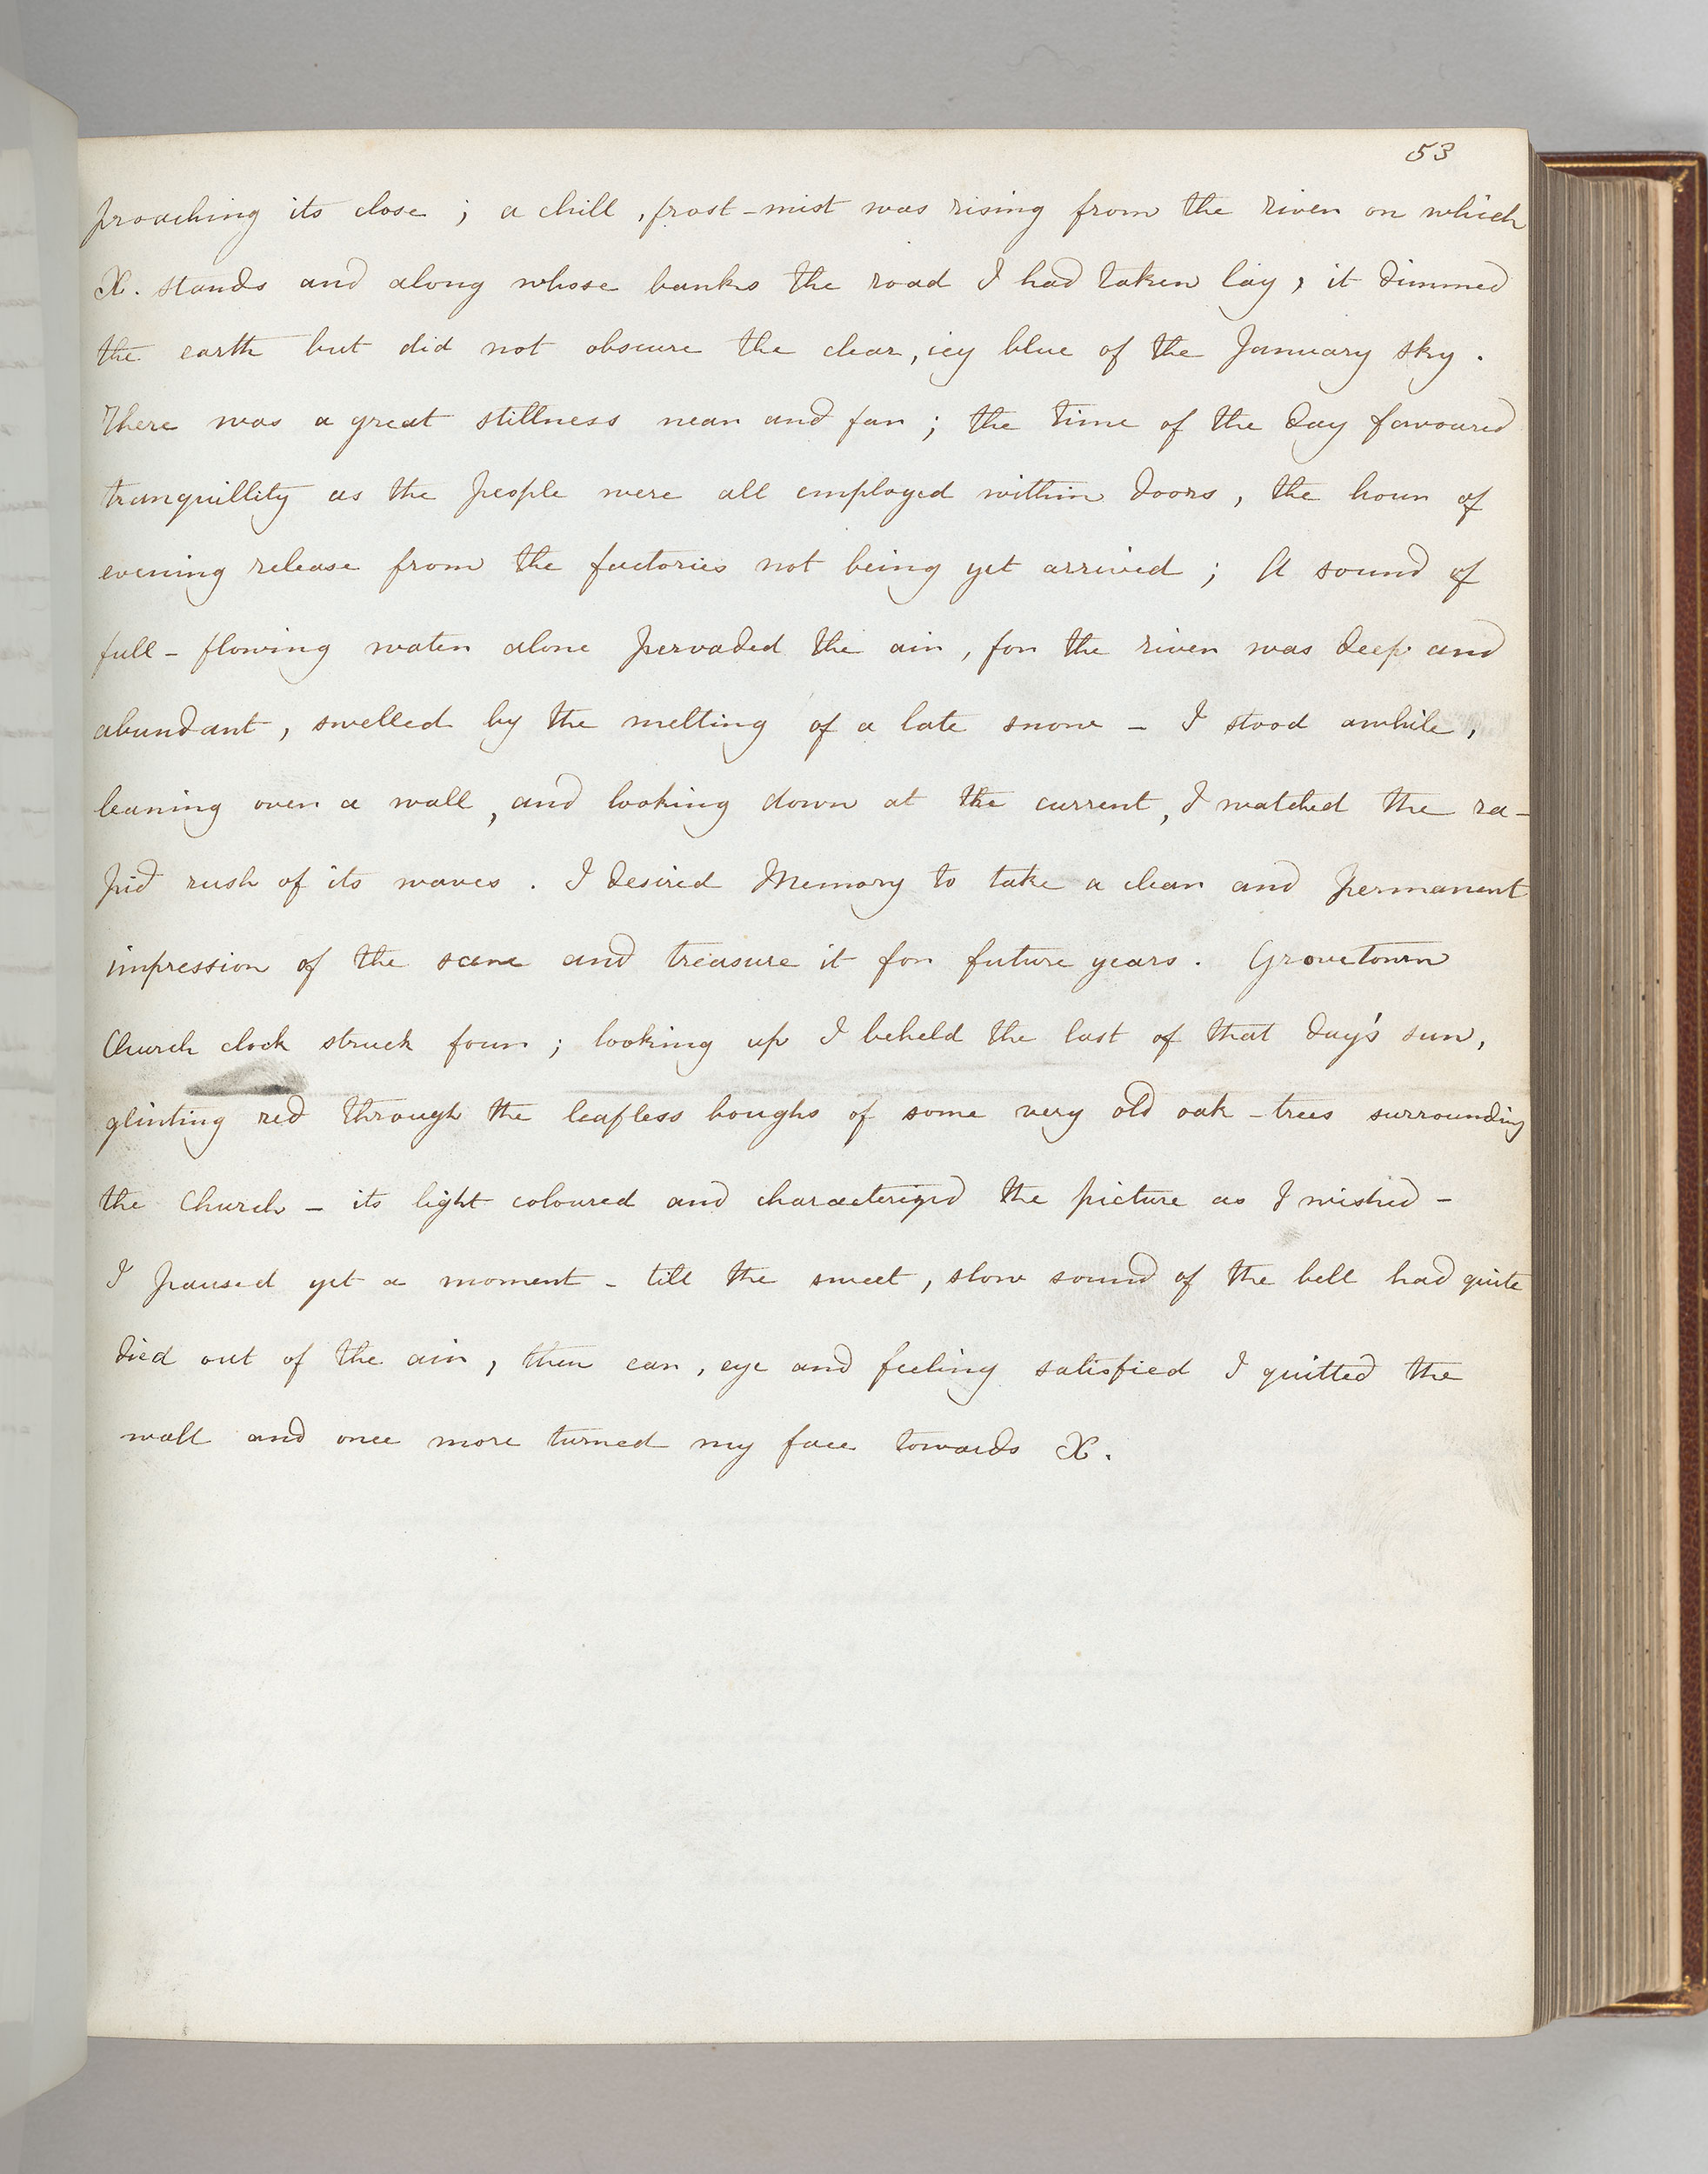 53
proaching its close ; a chill , frost-mist was rising from the river on which
X. stands and along whose banks the road I had taken lay ; it dimmed
the earth but did not obscure the clear, icy blue of the January sky .
There was a great stillness near and far ; the time of the day favoured
tranquillity as the people were all employed within doors , the hour of
evening release from the factories not being yet arrived ; A sound of
full-flowing water alone pervaded the air , for the river was deep and
abundant , swelled by the melting of a late snow - I stood awhile ,
leaning over a wall , and looking down at the current , I watched the ra-
pid rush of its waves . I desired Memory to take a clear and permanent
impression of the scene and treasure it for future years . Grovetown
Church clock struck four ; looking up I beheld the last of that day's sun ,
glinting red through the leafless boughs of some very old oak-trees surrounding
the Church - its light coloured and characterized the picture as I wished -
I paused yet a moment - till the sweet , slow sound of the bell had quite
died out of the air , then ear , eye and feeling satisfied I quitted the
wall and once more turned my face towards X .